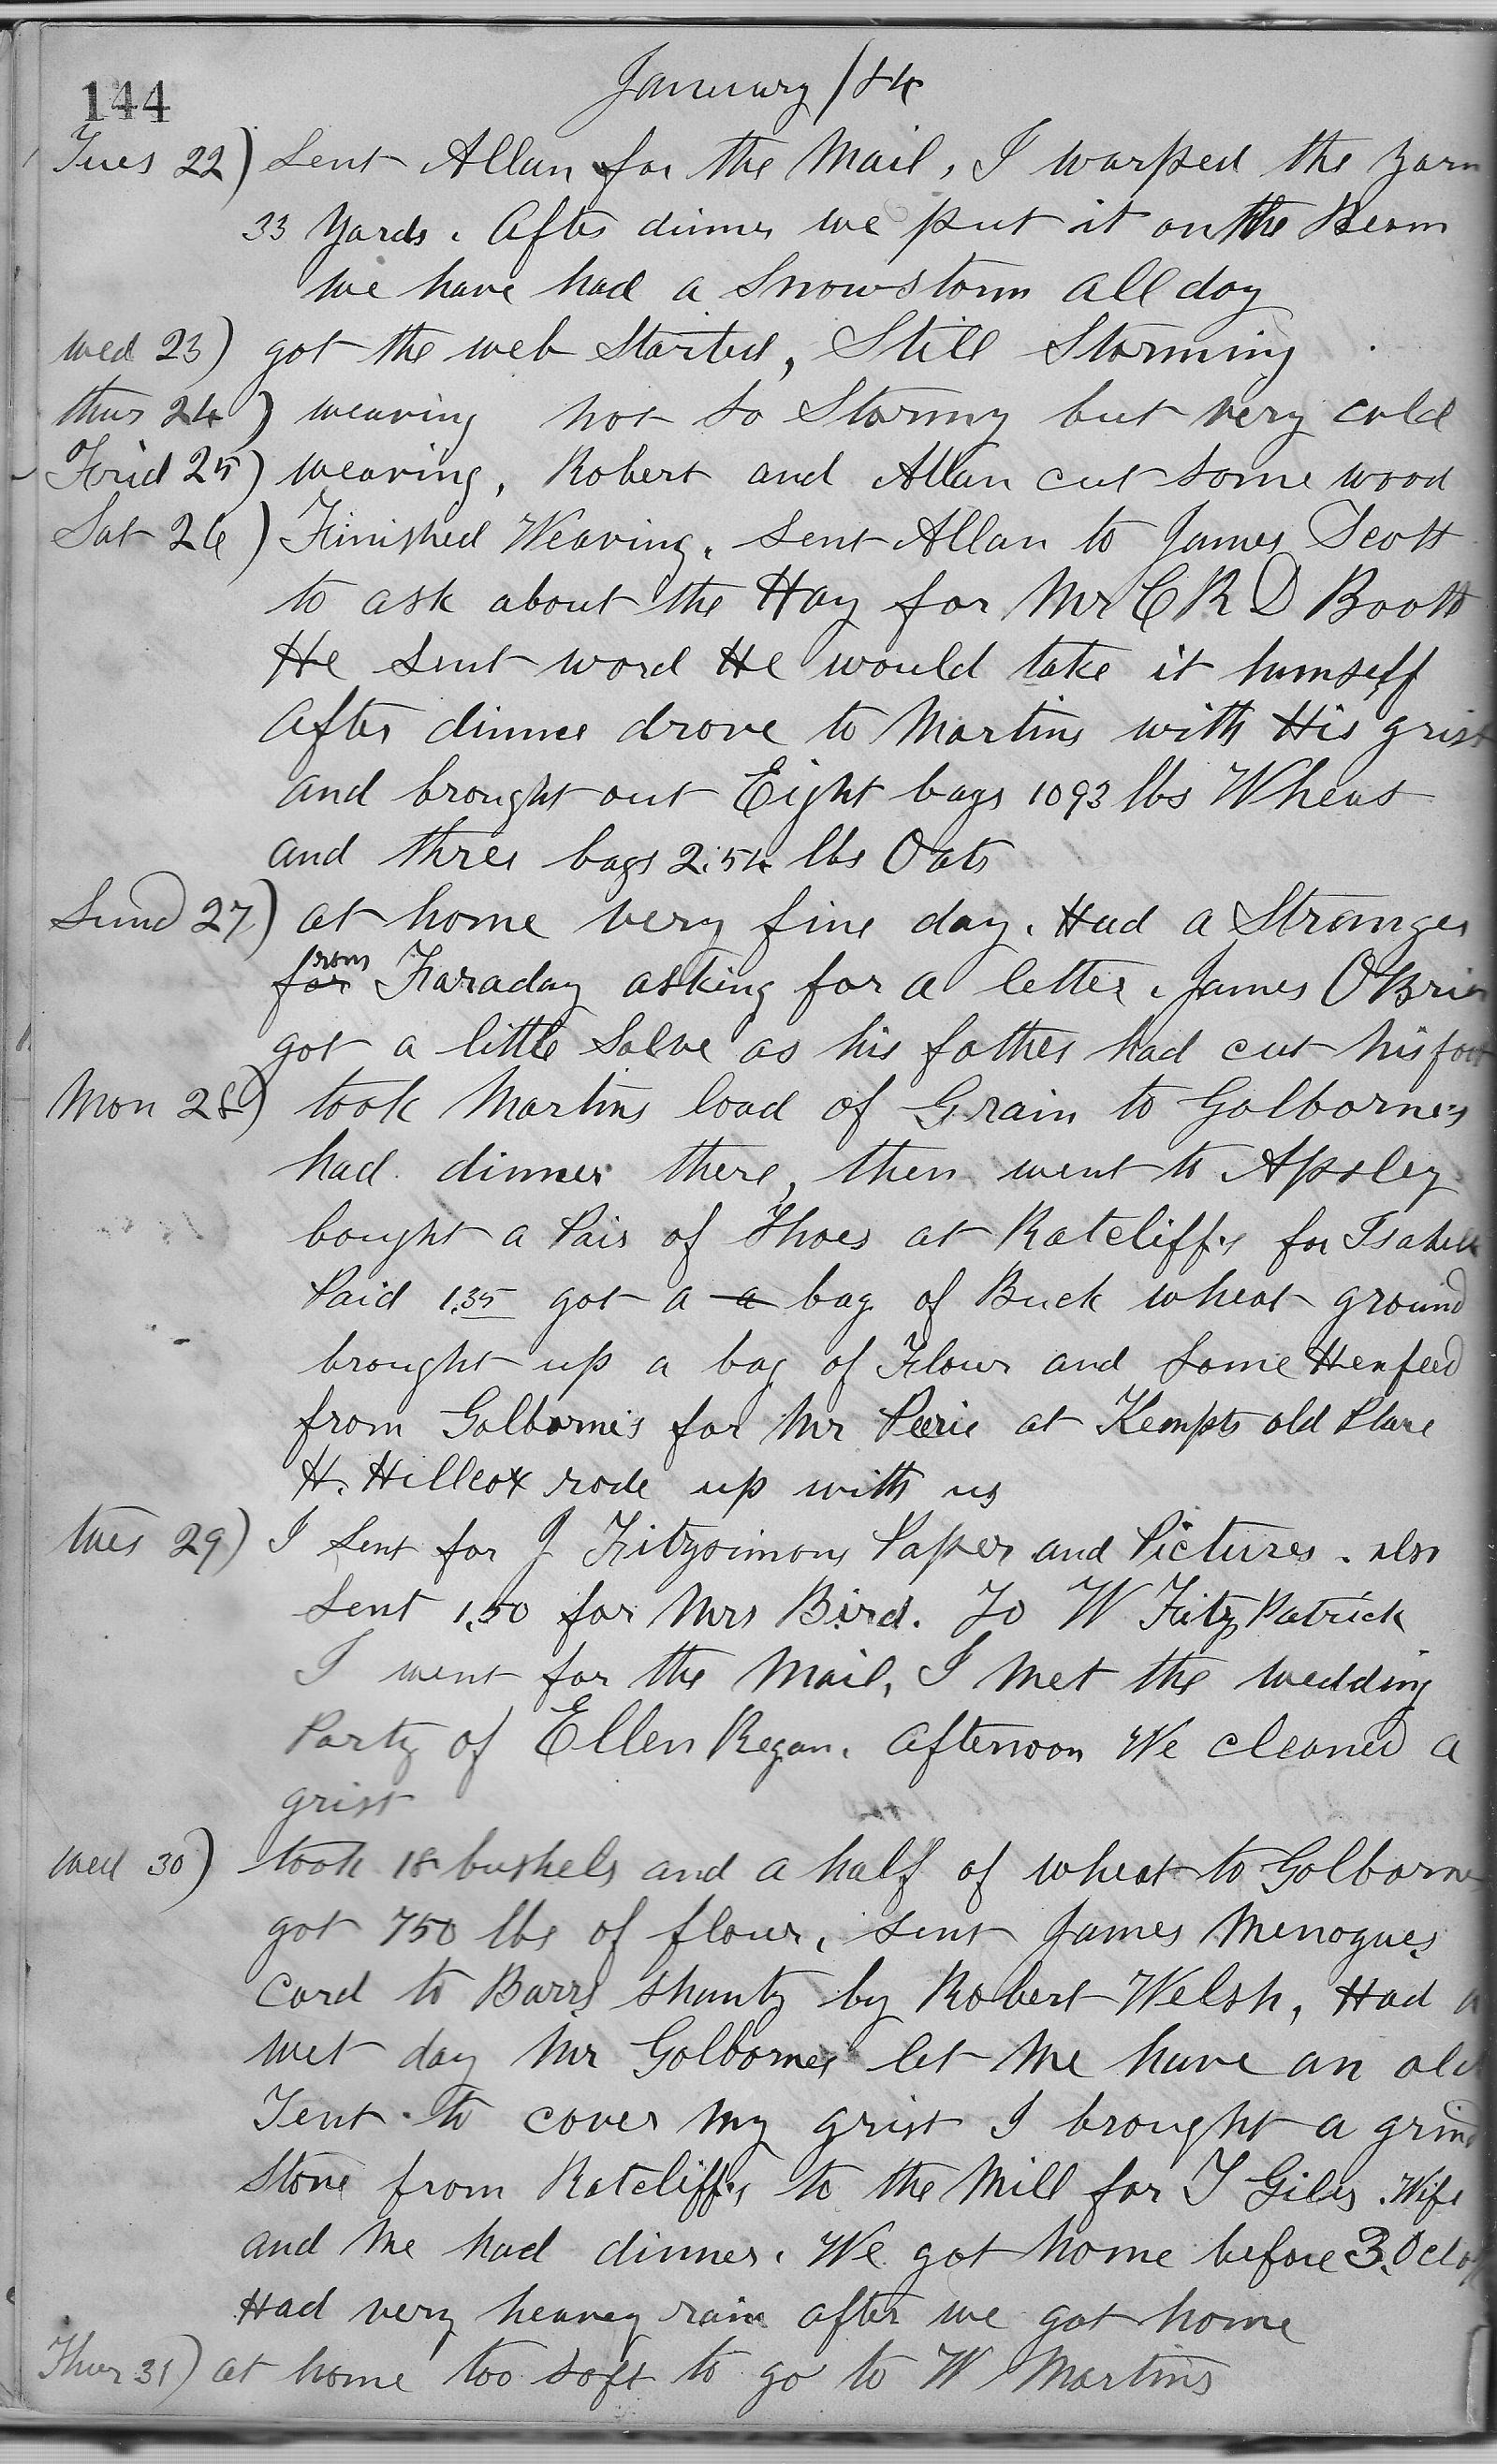 144
January /84
Tues 22) Sent Allan for the Mail, I warped the yarn
33 Yards. After dinner we put it on the Beam
We have had a Snowstorm all day
Wed 23) got the web Started, Still Storming
thur 24) weaving not so Stormy but very cold
Frid 25) weaving, Robert and Allan cut some wood
Sat 26) Finished Weaving. Sent Allan to James Scott
to ask about the Hay for Mr C R D Booth
He sent word He would take it himself
After dinner drove to Martins with His grist
and brought out Eight bags 1093 lbs Wheat
and three bags 254 lbs Oats
Sund 27) at home very fine day. Had a Stranger
from Faraday asking for a letter. James OBrien
got a little Salve as his father had cut his foot
Mon 28) took Martins load of Grain to Golbornes
had dinner there, then went to Apsley
bought a Pair of Shoes at Ratcliffs for Isabella
Paid 1.35 got a a bag of Buck wheat ground
brought up a bag of Flour and Some Henfeed
from Golbornes for Mr Peerie at Kempts old Place
H. Hillcox rode up with us
tues 29) I Sent for J Fitzsimons Paper and Pictures. also
Sent 1.50 for Mrs Bird. To W FitzPatrick
I went for the Mail, I Met the wedding
Party of Ellen Regan. Afternoon We cleaned a
grist
Wed 30) took 18 bushels and a half of wheat to Golbornes
got 750 lbs of flour, sent James Menogues
Card to Barrs shanty by Robert Welsh, Had a
wet day Mr Golbornes let Me have an old
Tent to cover My grist I brought a grind
Stone from Ratcliffs to the Mill for T Giles. Wife
and Me had dinner. We got home before 3 Oclock
Had very heavey rain after we got home
Thur 31) at home too soft to go to W Martins